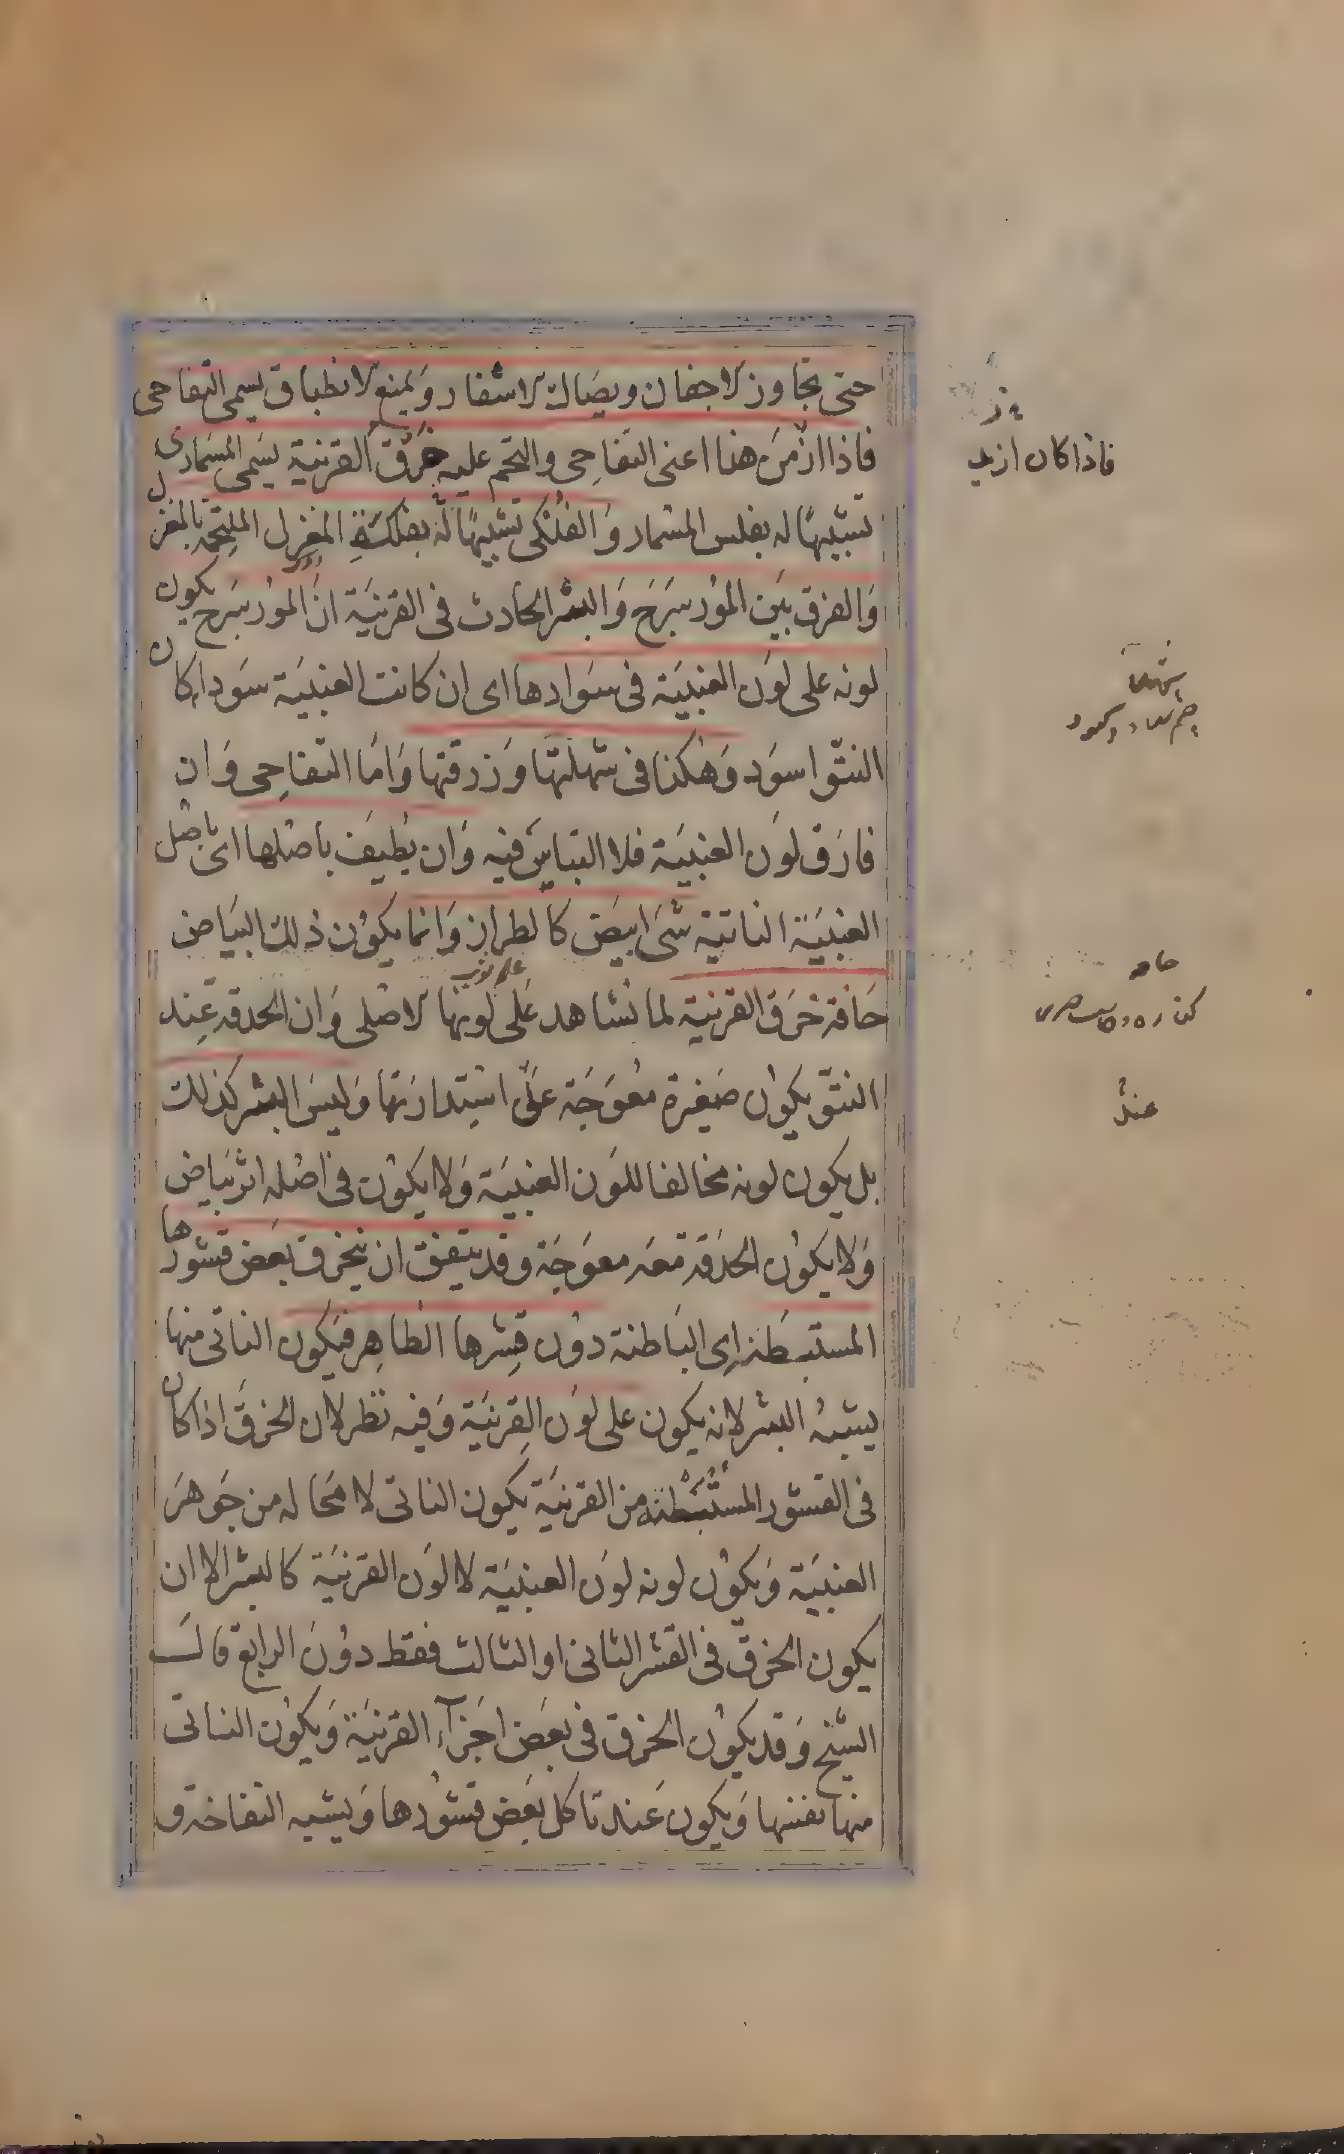 حتى يجاوز الاجفان ويصاك الاشفار ويمنع الانطباق يسمى التفاحى
فاذا ازمن هذا اعنى التفاحى والتحم عليه خرق القرنية يسمى المسمارى
تشبيها له بفلس المسمار والفلكى تشبيها له بفلكة المغزل الملتحمة بالمغزل
والفرق بين المورسرج والبثر الحادث فى القرنية ان المورسرج يكون
لونه على لون العنبية فى سوادها اى ان كانت العنبية سوداء كان
النتو اسود وهكذا فى شهلتها وزرقتها واما التفاحى وان
فارق لون العنبية فلا التباس فيه وان يطيف باصلها اى باصل
العنبية الناتية شى ابيض كالطراز وانما يكون ذلك البياض
حافة خرق القرنية لما نشاهد على لونها الاصلى وان الحدقة عند
النتو يكون صغيرة معوجة على استدارتها وليس البثر كذلك
بل يكون لونه مخالفا للون العنبية ولا يكون فى اصله اثر بياض
ولا يكون الحدقة معه معوجة وقد يتفق ان ينخرق بعض قشورها
المستبطنة اى الباطنة دون قشرها الظاهر فيكون الناتى منها
يشبه البثر لانه يكون على لون القرنية وفيه نظر لان الخرق اذا كان
فى القشور المستبطنة من القرنية يكون الناتى لا محالة من جوهر
العنبية ويكون لونه لون العنبية لا لون القرنية كالبثر الا ان
يكون الخرق فى القشر الثانى او الثالث فقط دون الرابع قال
الشيخ وقد يكون الخرق فى بعض اجزآء القرنية ويكون الناتى
منها نفسها ويكون عند تاكل بعض قشورها ويشبه النفاخة و
فاذا كان ازيد
عند